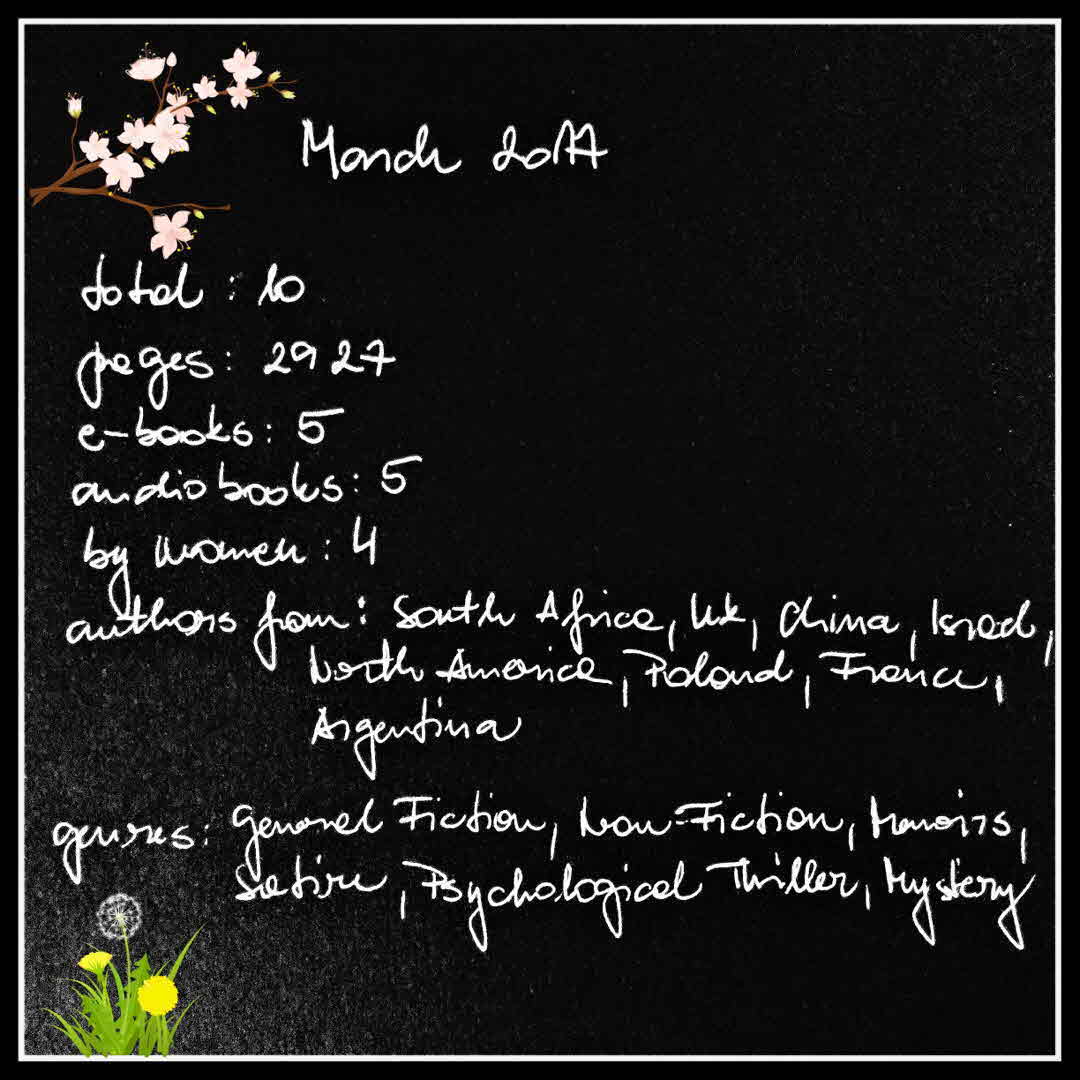 March 2017
total: 10
pages: 2927
e-books: 5
audiobooks: 5
by women: 4
authors from: South Africa, UK, China, Israel,
North America, Poland, France,
Argentina
genres: General Fiction, Non-Fiction, Memoirs,
Satire, Psychological Thriller, Mystery